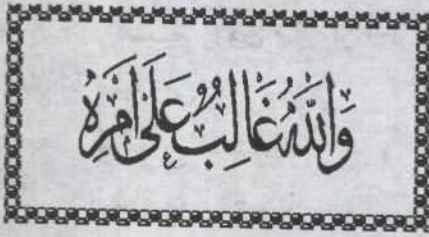 وَاللَّهُ غَالِبٌ عَلَى أَمْرِهِ